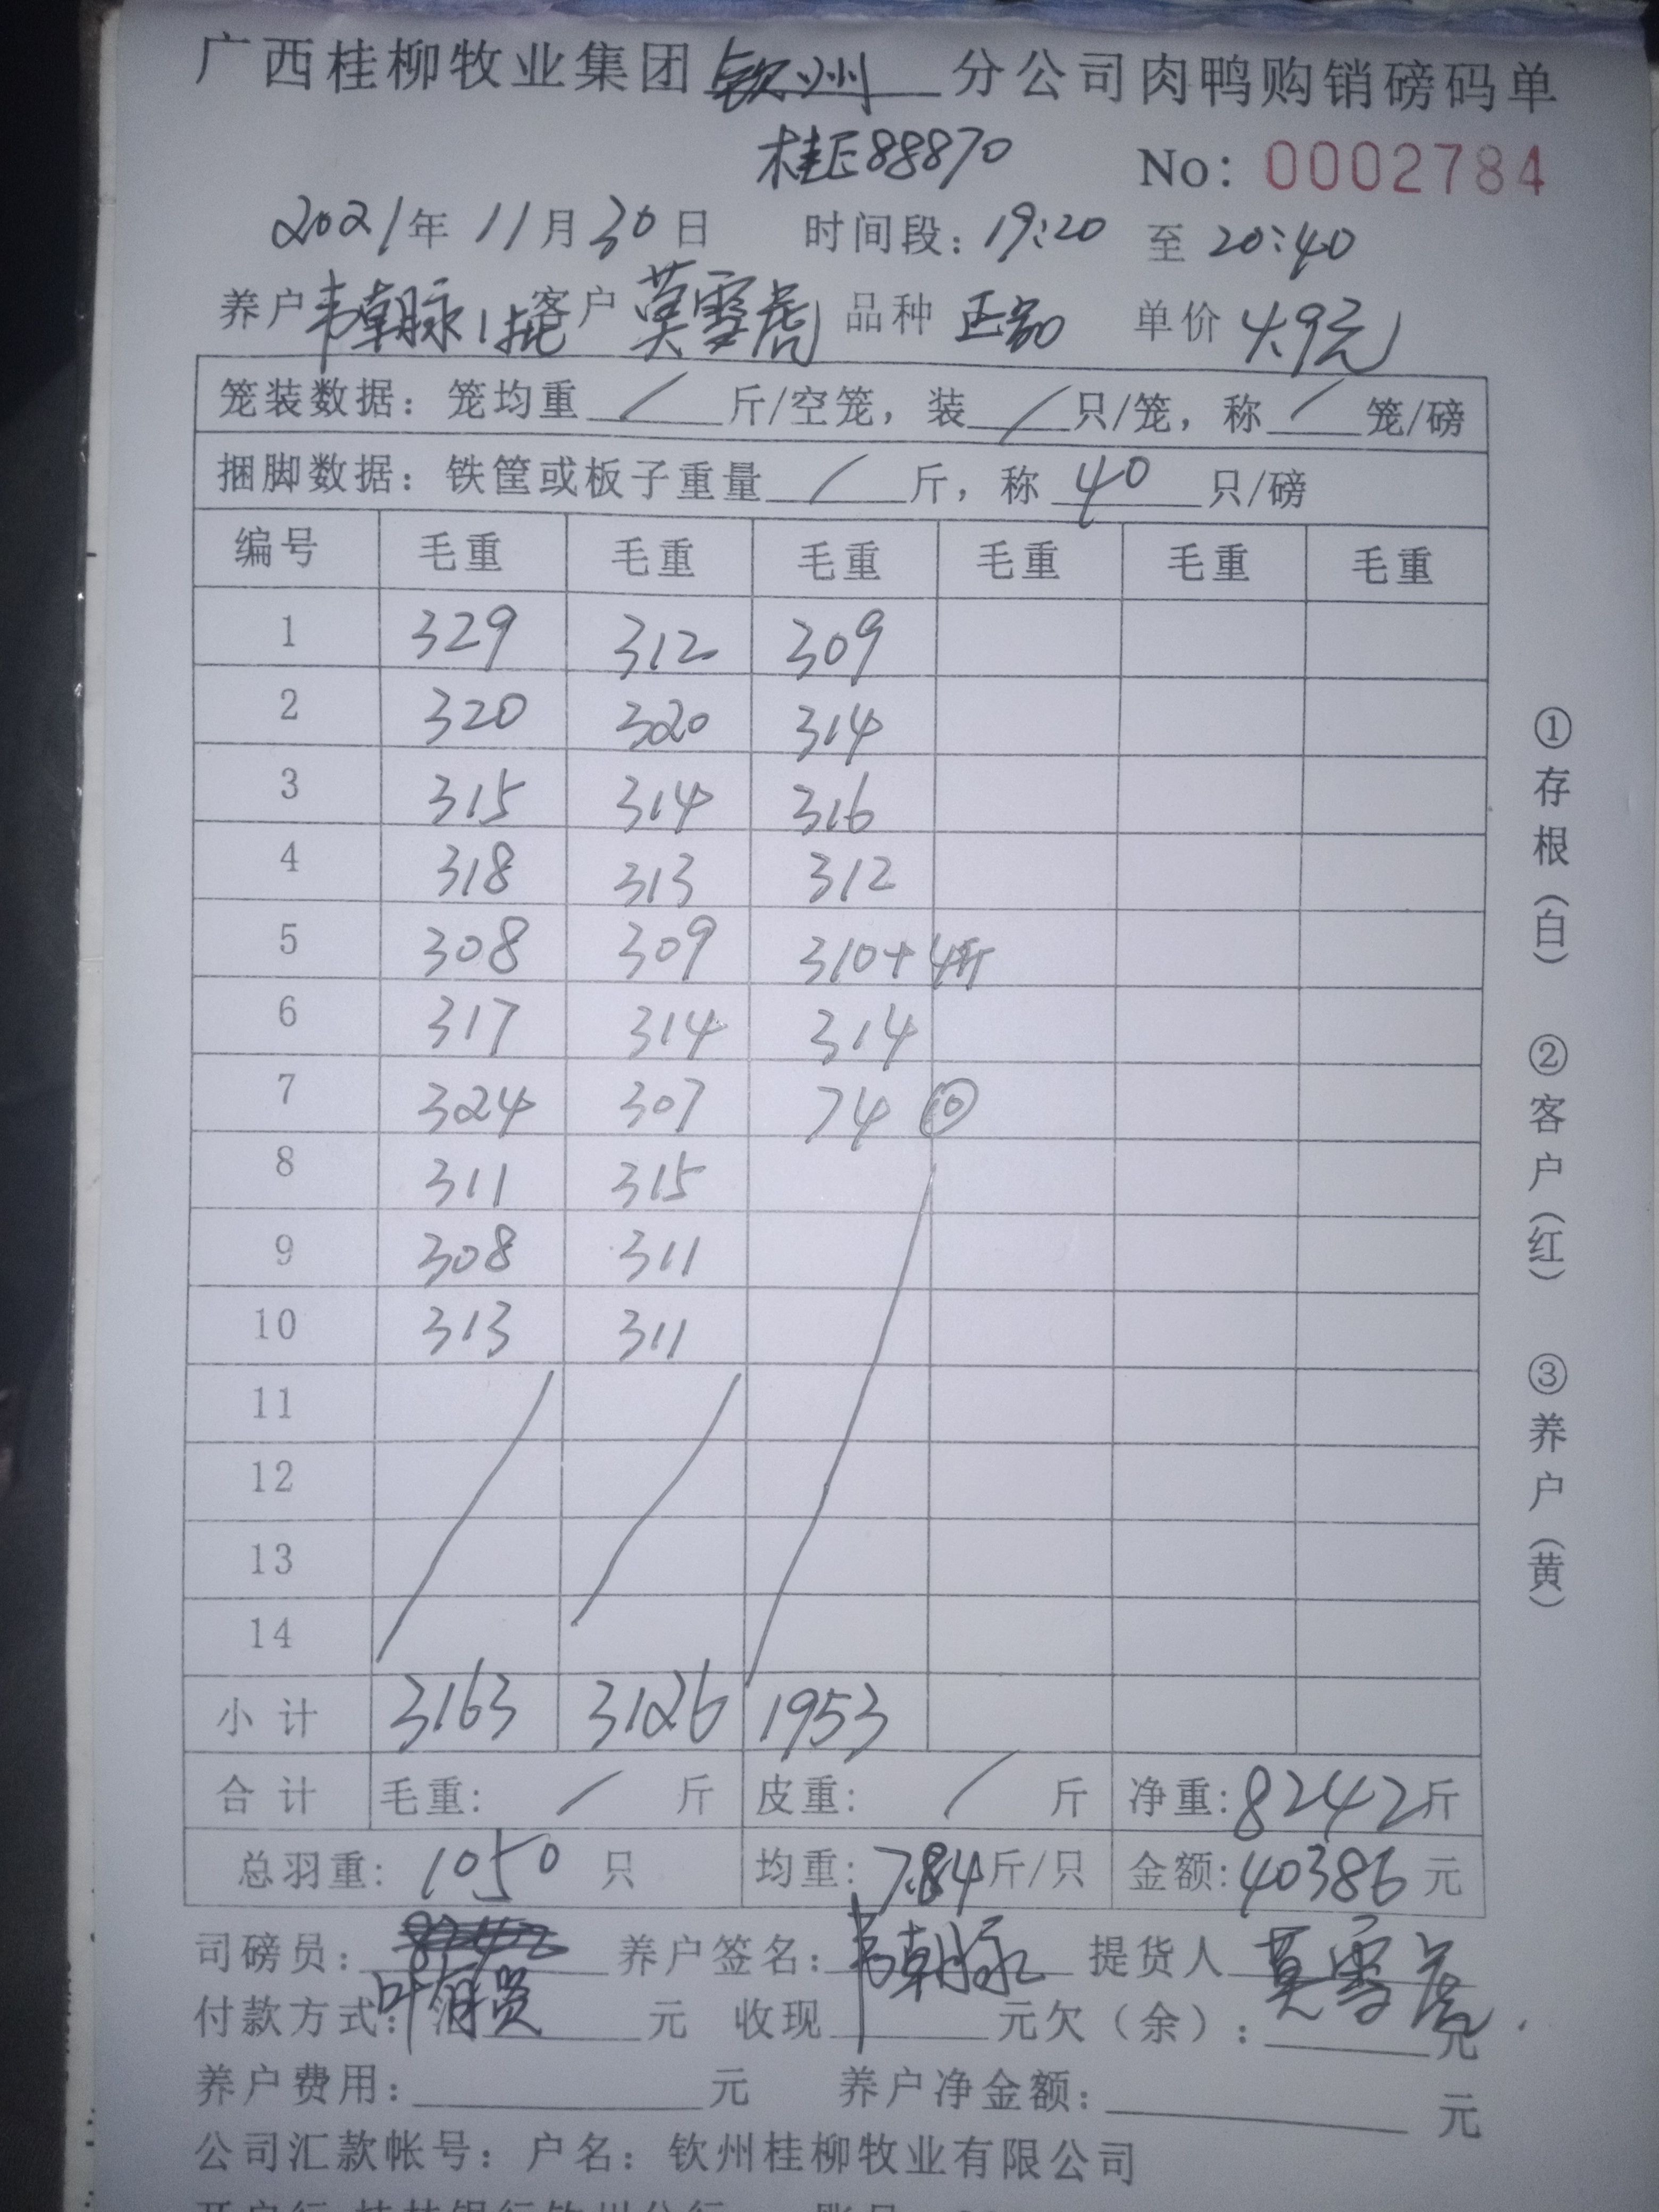 广西桂柳牧业集团钦州分公司肉鸭购销磅码单
桂E88870 No: 0002784
2021年 11月30日 时间段: 19:20 至 20:40
养户韦朝脉1批 客户 莫雪虎 品种 正常 单价 4.9元
笼装数据: 笼均重 / 斤/空笼, 装 / 只/笼, 称 / 笼/磅
捆脚数据: 铁筐或板子重量 / 斤, 称 40 只/磅
编号 毛重 毛重 毛重 毛重 毛重 毛重
1 329 312 309
2 320 320 314
3 315 314 316
4 318 313 312
5 308 309 310+4斤
6 317 314 314
7 324 307 74 ⑩
8 311 315
9 308 311
10 313 311
11
12
13
14
小计 3163 3126 1953
合计 毛重: / 斤 皮重: / 斤 净重: 8242斤
总羽重: 1050 只 均重: 7.84斤/只 金额: 40386 元
司磅员: 叶 养户签名: 韦朝脉 提货人 莫雪虎
付款方式: 元 收现 元欠(余): 元
养户费用: 元 养户净金额: 元
公司汇款帐号: 户名: 钦州桂柳牧业有限公司
①存根(白) ②客户(红) ③养户(黄)